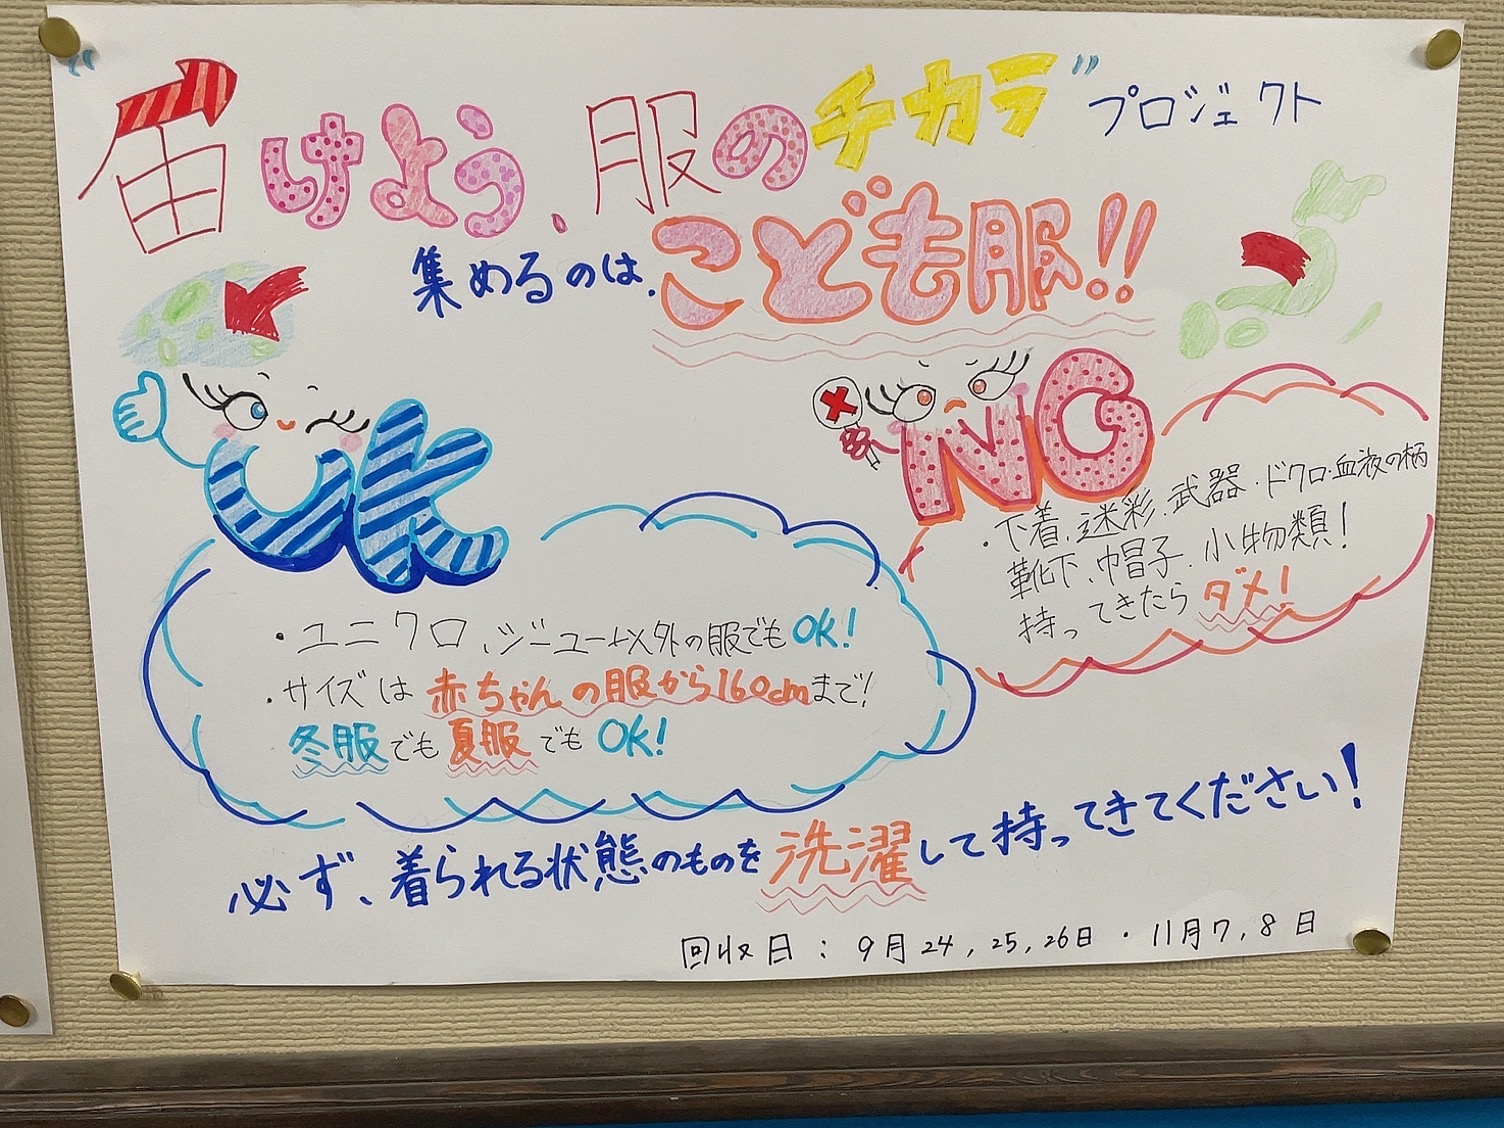 “届けよう、服のチカラ”プロジェクト
集めるのは、こども服!!
OK
・ユニクロ、ジーユー以外の服でもOK!
・サイズは赤ちゃんの服から160cmまで!
冬服でも夏服でもOK!
NG
・下着、迷彩、武器・ドクロ・血液の柄
靴下、巾冒子、小物類!
持ってきたらダメ!
必ず、着られる状態のものを洗濯して持ってきてください!
回収日:9月24,25,26日・11月7,8日